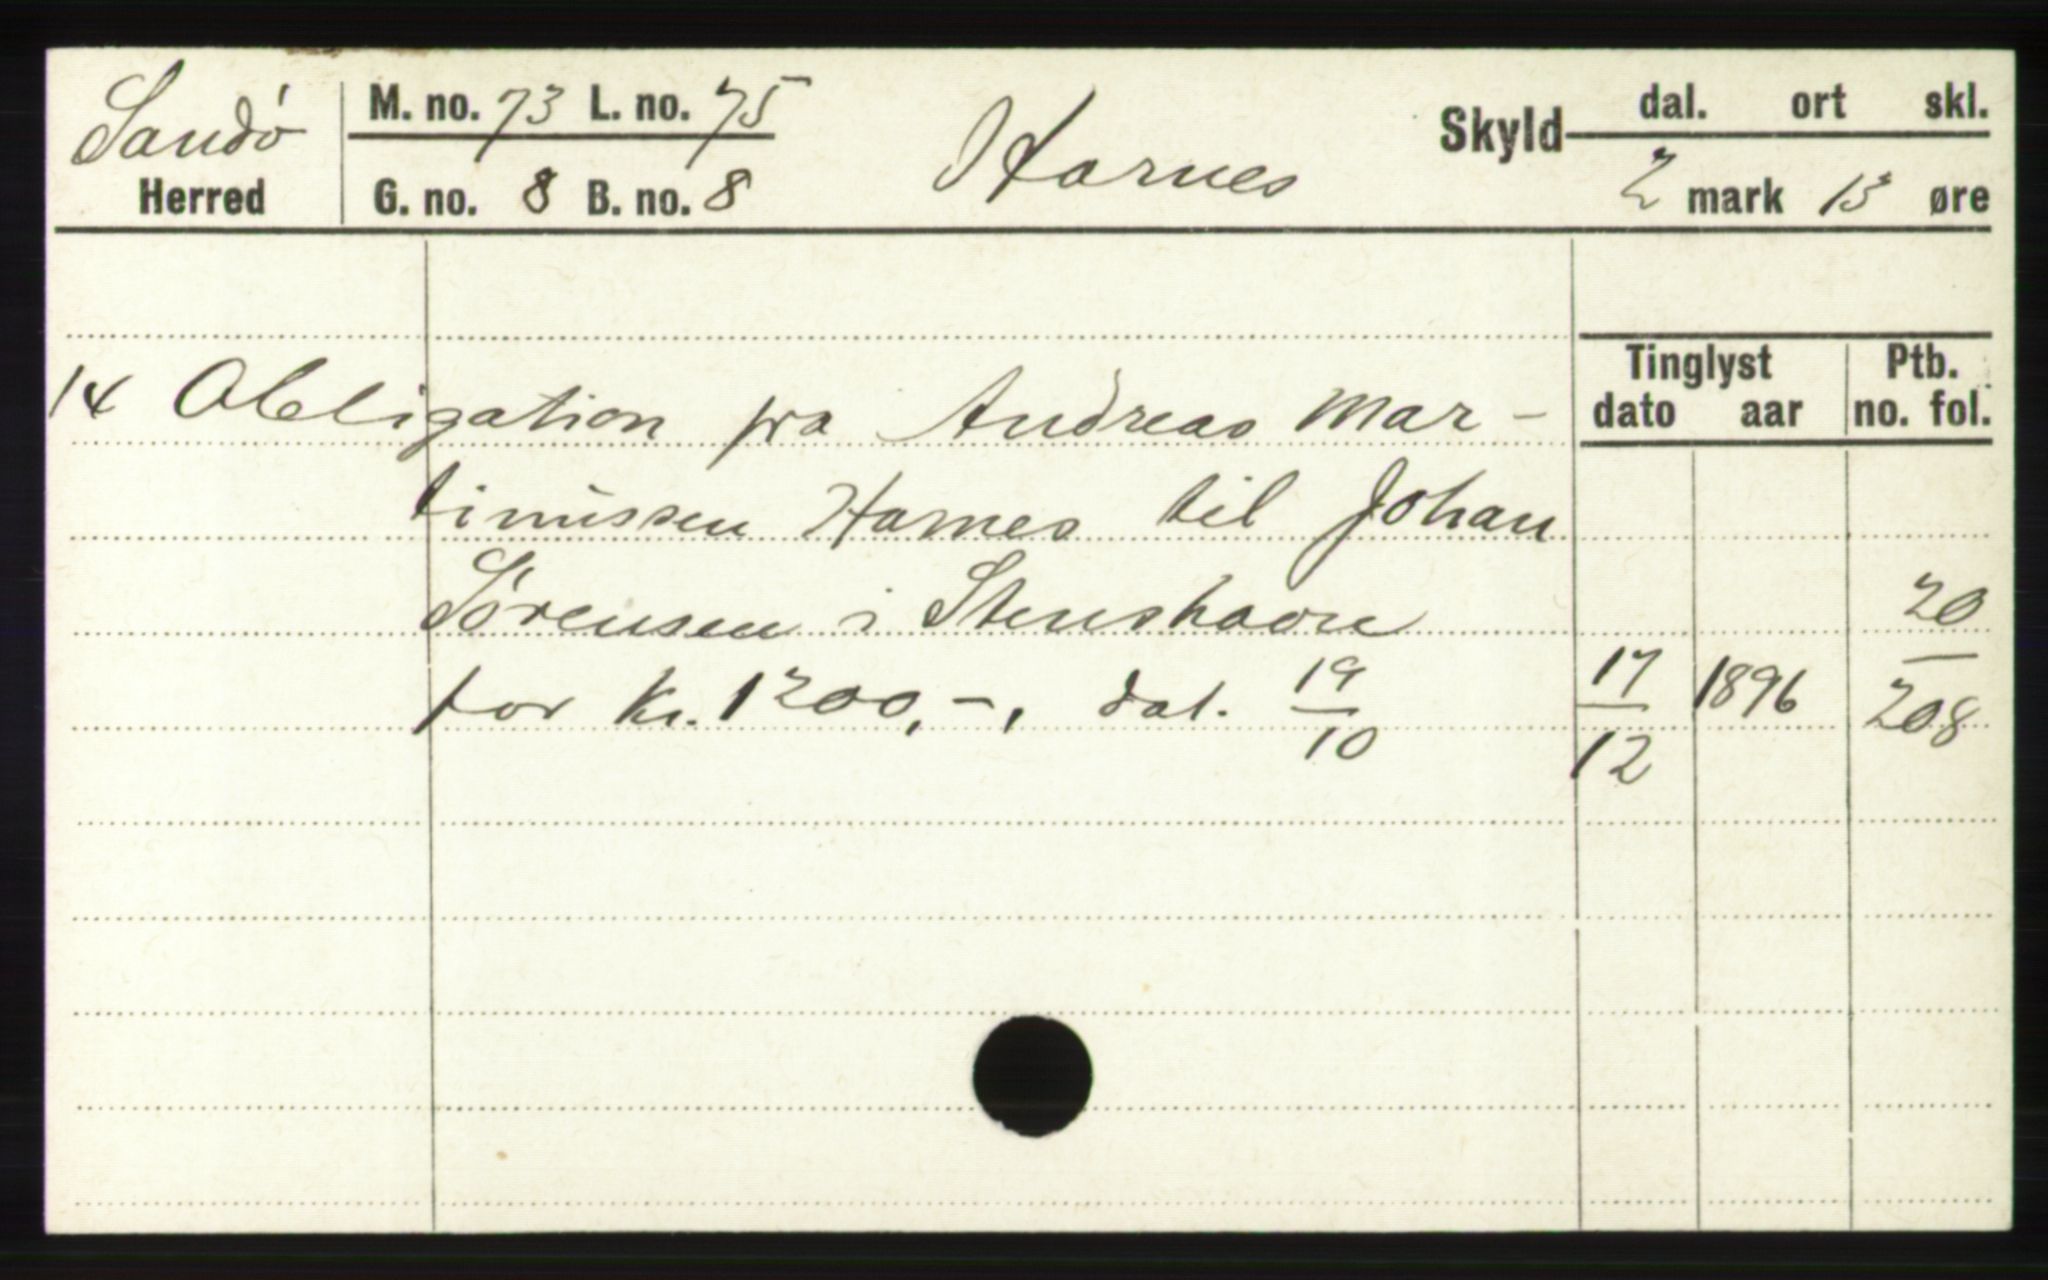 Sandö Herred
M. no. 73 L. no. 75
G. no. 8 B. no. 8
Harnes
Skyld dal. ort skl.
2 mark 13 øre
Tinglyst Ptb.
dato aar no. fol.
14 Obligation fra Andreas Mar-
tinussen Harnes til Johan
Sörensen i Stenshavn
for kr. 1200,-, dat. 19/10 17/12 1896 20/208